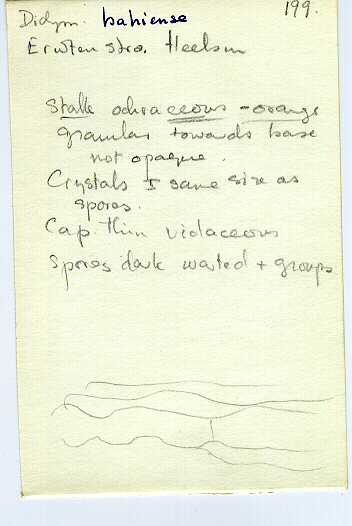 Didym. bahiense 199.
Erwten stro. Heelsum
Stalk ochraceous - orange
granular towards base
not opaque.
Crystals I same size as
spores.
Cap. thin violaceous
Spores dark warted + groups